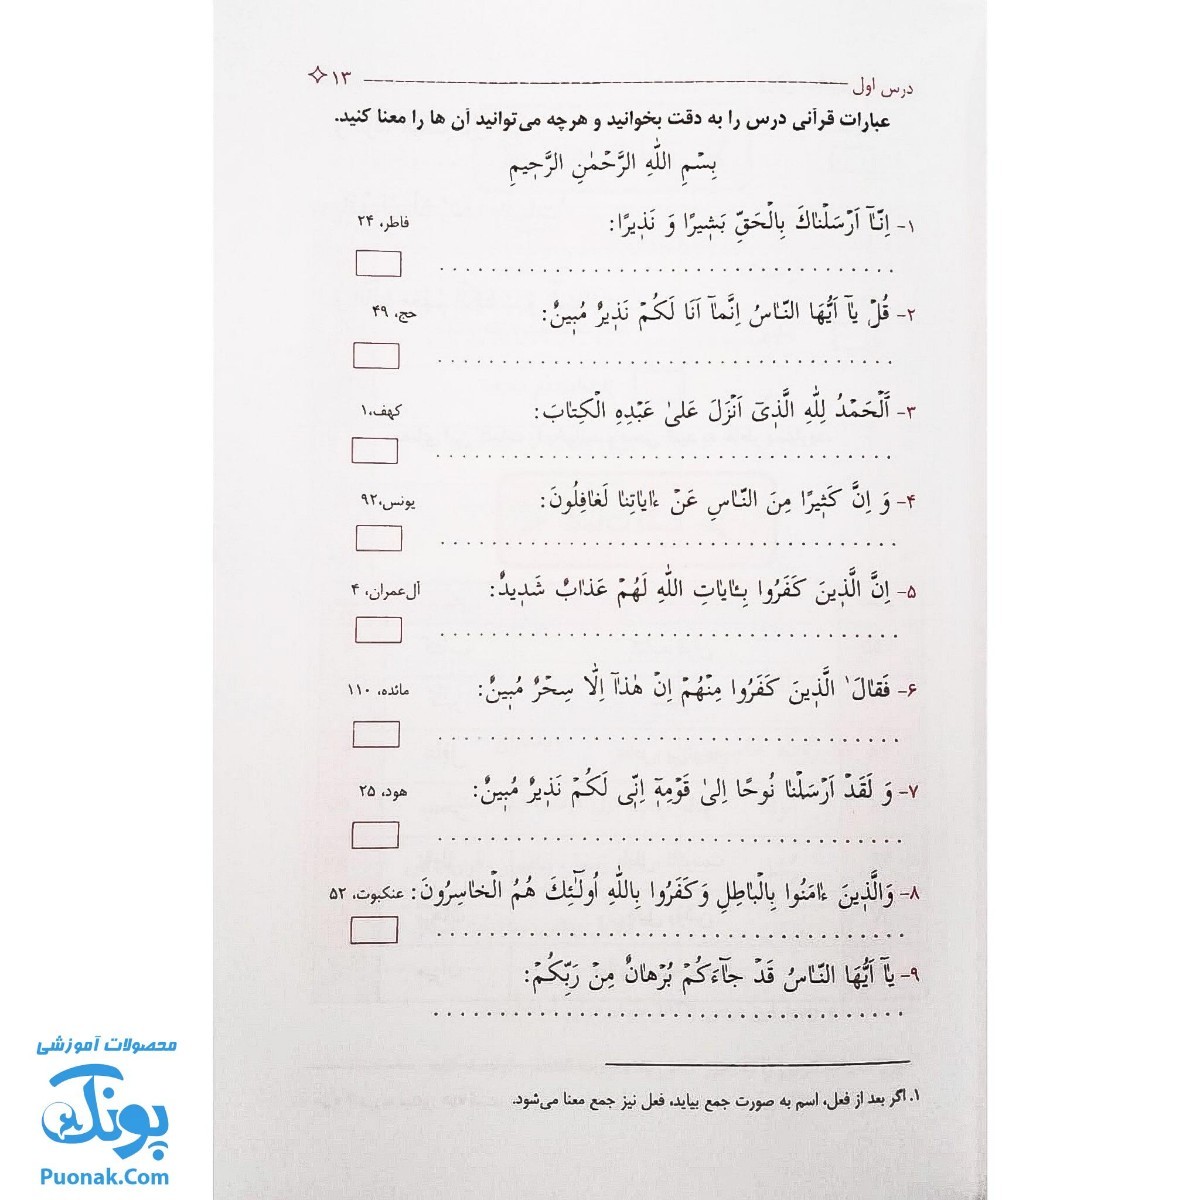 درس اول ۱۳
عبارات قرآنی درس را به دقت بخوانید و هرچه می‌توانید آن ها را معنا کنید.
بِسْمِ اللّٰهِ الرَّحْمٰنِ الرَّحیمِ
۱- اِنّآ اَرْسَلْناكَ بِالْحَقِّ بَشیرًا وَ نَذیرًا: فاطر، ۲۴
۲- قُلْ یآ اَیُّهَا النّاسُ اِنَّمآ اَنَا لَكُمْ نَذیرٌ مُبینٌ: حج، ۴۹
۳- اَلْحَمْدُ لِلّٰهِ الَّذیٓ اَنْزَلَ عَلیٰ عَبْدِهِ الْكِتابَ: کهف،۱
۴- وَ اِنَّ كَثیرًا مِنَ النّاسِ عَنْ ءایاتِنا لَغافِلُونَ: یونس،۹۲
۵- اِنَّ الَّذینَ كَفَرُوا بِـٔایاتِ اللّٰهِ لَهُمْ عَذابٌ شَدیدٌ: آل‌عمران، ۴
۶- فَقالَ ۱ الَّذینَ كَفَرُوا مِنْهُمْ اِنْ هٰذآ اِلّا سِحْرٌ مُبینٌ: مائده، ۱۱۰
۷- وَ لَقَدْ اَرْسَلْنا نُوحًا اِلیٰ قَوْمِهٓ اِنّی لَكُمْ نَذیرٌ مُبینٌ: هود، ۲۵
۸- وَالَّذینَ ءامَنُوا بِالْباطِلِ وَ كَفَرُوا بِاللّٰهِ اُولٰٓئِكَ هُمُ الْخاسِرُونَ: عنکبوت، ۵۲
۹- یآ اَیُّهَا النّاسُ قَدْ جآءَكُمْ بُرْهانٌ مِنْ رَبِّكُمْ:
۱. اگر بعد از فعل، اسم به صورت جمع بیاید، فعل نیز جمع معنا می‌شود.
محصولات آموزشی
پونک
Puonak.Com